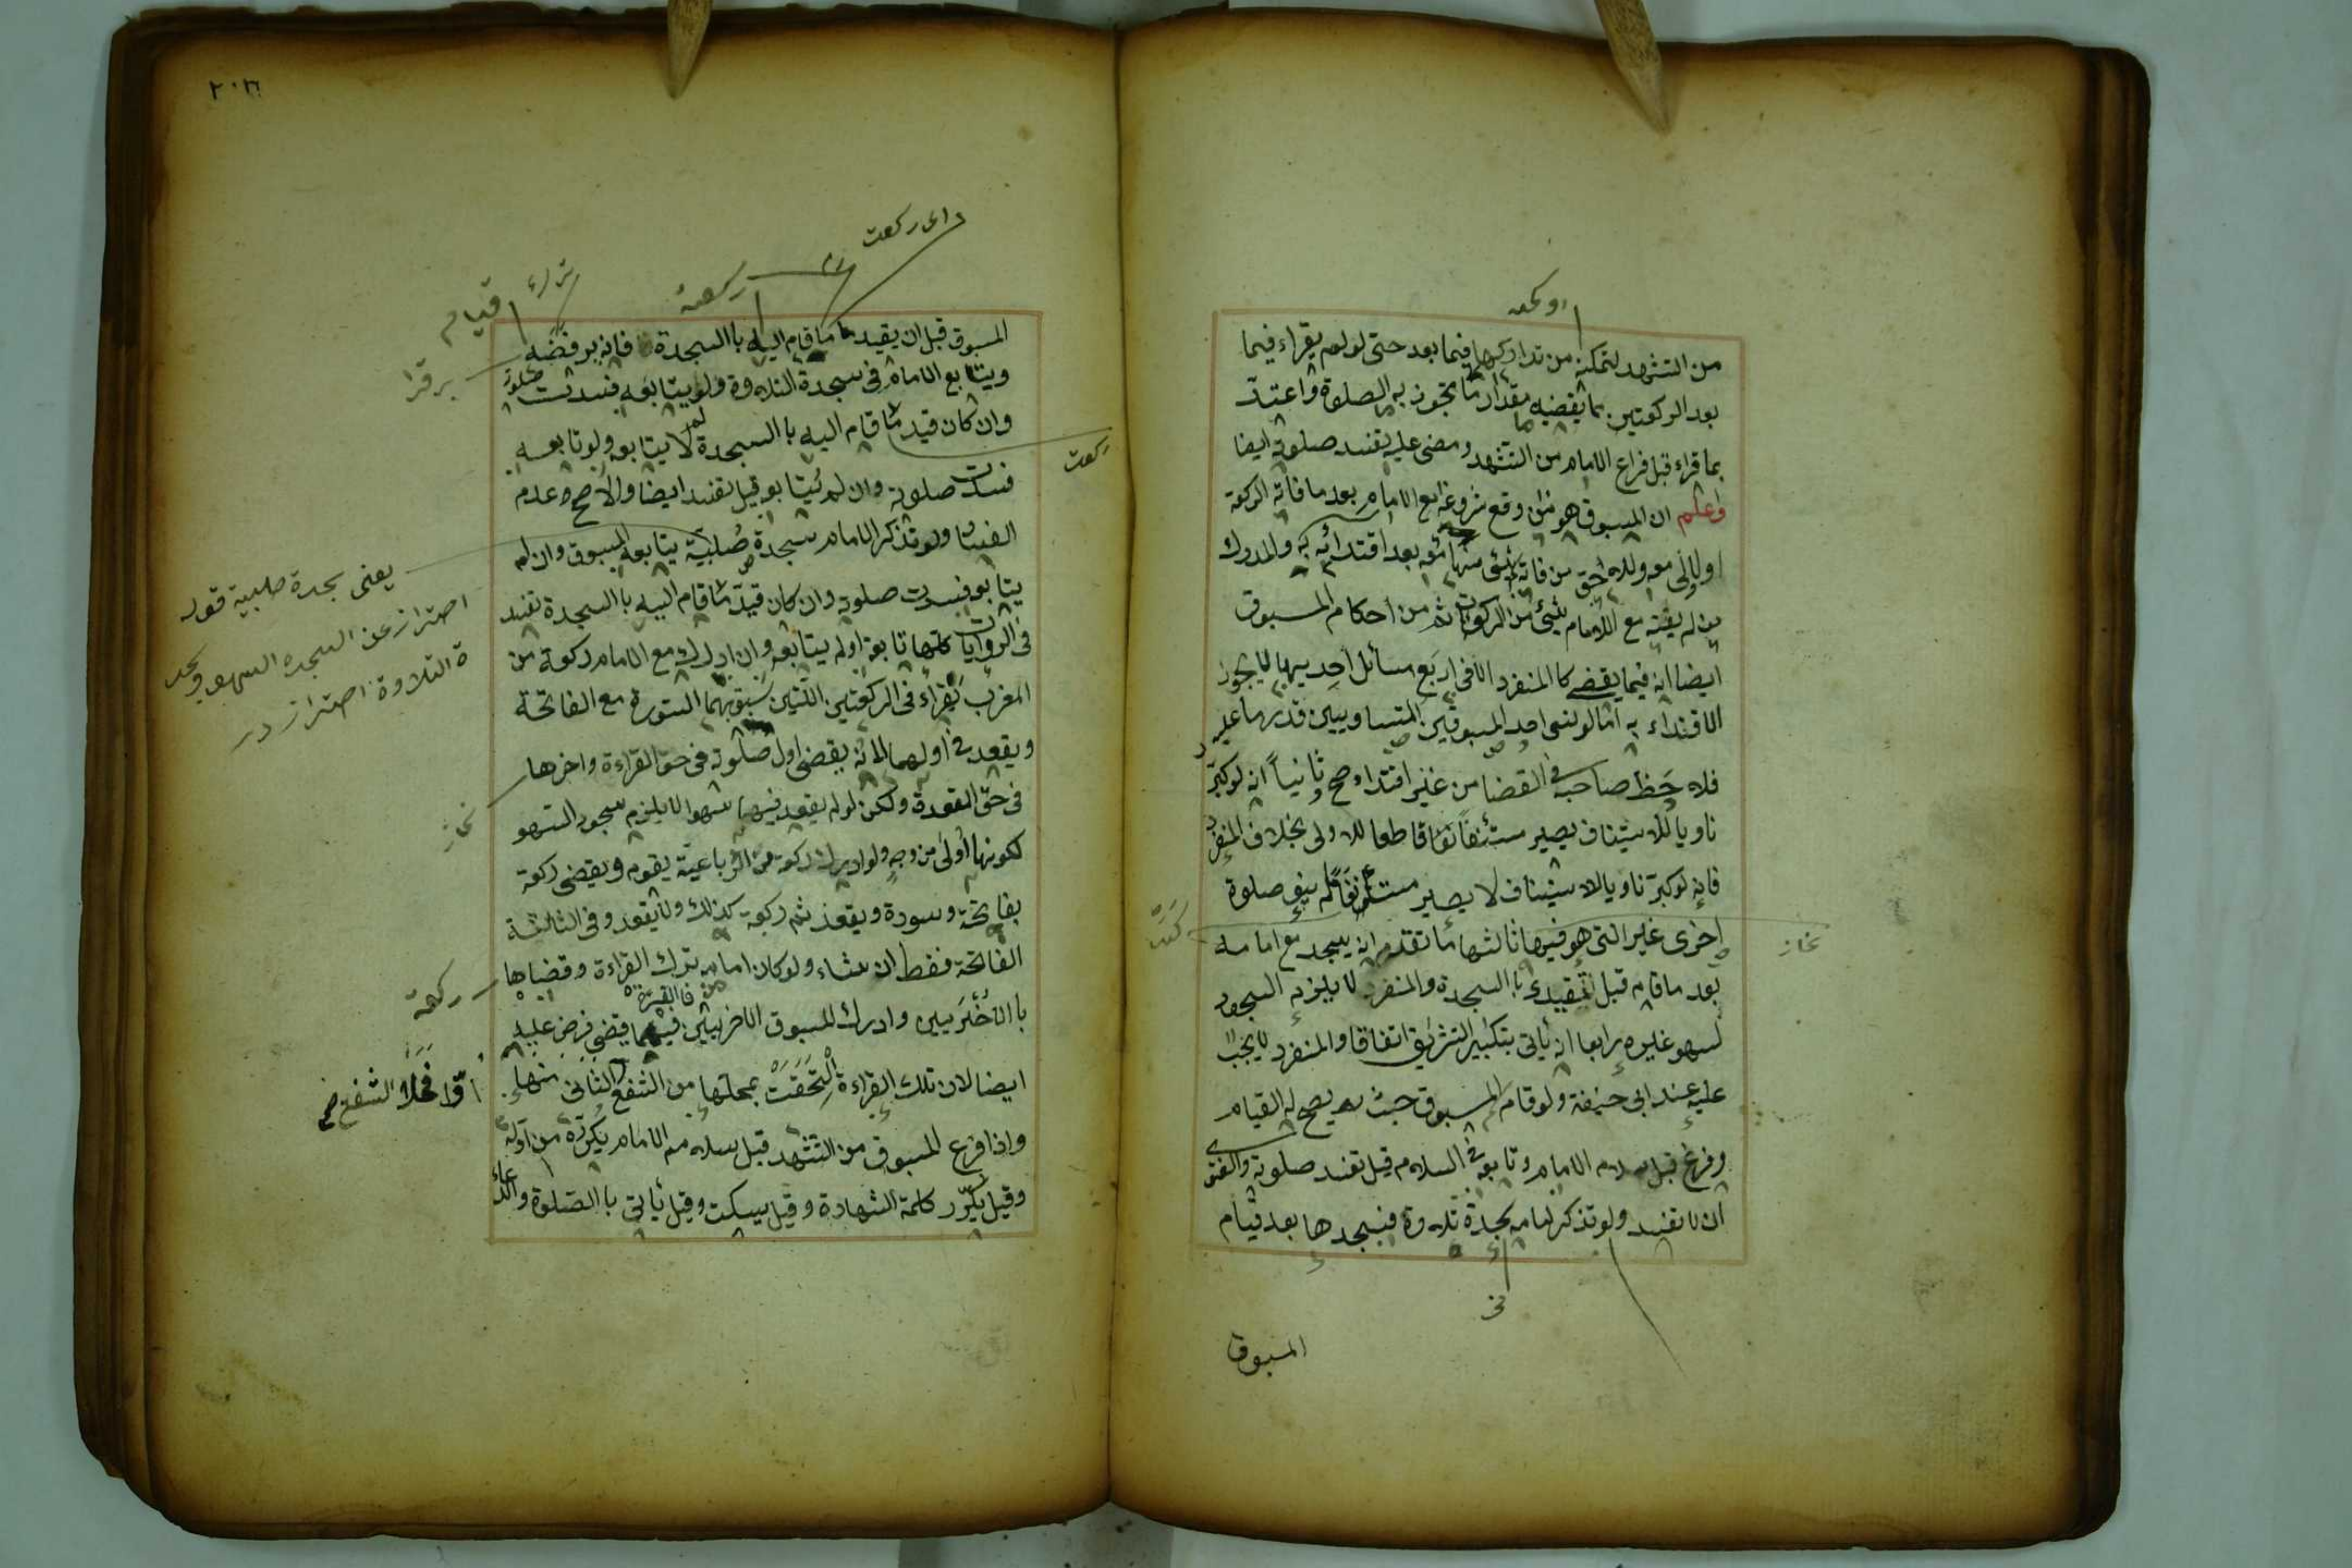 او كعه
من التشهد لتمكنه من تداركها فيما بعد حتى لو لم يقراء فيما
بعد الركعتين بما يقضيه مقدار ما تجوز به الصلوة واعتدّ
بما قراء قبل فراغ الامام من التشهد ومضى عليه تفسد صلوته ايضا
واعلم ان المسبوق هو من وقع شروعه مع الامام بعد ما فاته الركعة
اولالى معه وللاحق من فاته شئ منها معه بعد اقتدائه به والمدرك
من لم يفته مع الامام شئ من الركعات ثم من احكام المسبوق
ايضا انه فيما يقضى كا المنفرد الا فى اربع مسائل احديها لا يجوز
الاقتداء به امّا لو نسى احد المسبوقين المتساويين قدر ما عليه
فلاحظ صاحبه فى القضا من غير اقتداء صح وثانياً انه لو كبّر
ناويا للاستيناف يصير مستئنفاً قاطعا للاولى بخلاف المنفرد
فانه لو كبّر ناويا للاستيناف لا يصير مستئنفاً ما لم ينو صلوة
اخرى غير التى هو فيها ثالثها ما تقدم انه يسجد مع امامه
نماز
بعد ما قام قبل تقييده با السجدة والمنفرد لا يلزمه السجود
لسهو غيره رابعا انه يأتى بتكبير التشريق اتفاقا والمنفرد لا يجب
عليه عند ابى حنيفة ولو قام المسبوق حيث يصح له القيام
وفرغ قبل سلام الامام وتابعه فى السلام قيل تفسد صلوته والفتوى
ان لا تفسد ولو تذكر امامه سجدة تلاوة فسجدها بعد قيام
المسبوق
٢٠٦
داى ركعت
ركعة
قيام
المسبوق قبل ان يقيد ما قام اليه با السجدة فانه يرفضه
ويتابع الامام فى سجدة التلاوة ولو يتابعه فسدت صلوته
وان كان قيد ما قام اليه با السجدة لا يتابعه ولو تابعه
ركعت
فسدت صلوته وان لم يتابع قيل تفسد ايضا والاصح وعدم
الفساد ولو تذكر الامام سجدة صلبيّة يتابعه المسبوق وان لم
يعنى سجدة صلبية قوله
احتراز عن السجده السهو وسجد
ة التلاوة احتراز در
يتابع فسدت صلوته وان كان قيدّ ما قام اليه با السجدة تفسد
فى الروايات كلها تابعه اولم يتابعه وان ادرك مع الامام ركعة من
المغرب يقراء فى الركعتين اللتين سبق بهما السورة مع الفاتحة
ويقعد فى اولهما لانه يقضى اول صلوته فى حق القراءة واخرها
نماز
فى حقّ القعدة ولكن لو لم يقعد فيها سهوا لا يلزم سجود السهو
لكونها اولى من وجه ولو ادرك ركعة من الرباعيّة يقوم ويقضى ركعة
بفاتحة وسورة ويقعد ثم ركعة كذلك ولا يقعد وفى الثالثة
الفاتحة فقط ان شاء ولو كان امامه ترك القراءة وقضاها
ركعة
با الاخريين وادرك المسبوق الاخريين فيما يقضى فرض عليه
ايضا لان تلك القراءة التحقت بمحلها من الشفع الثانى منها
واذا فرغ المسبوق من التشهد قبل سلام الامام يكرّره من اوّله
وقيل يكرّر كلمة الشهادة وقيل يسكت وقيل يأتى با الصّلوة والدعاء